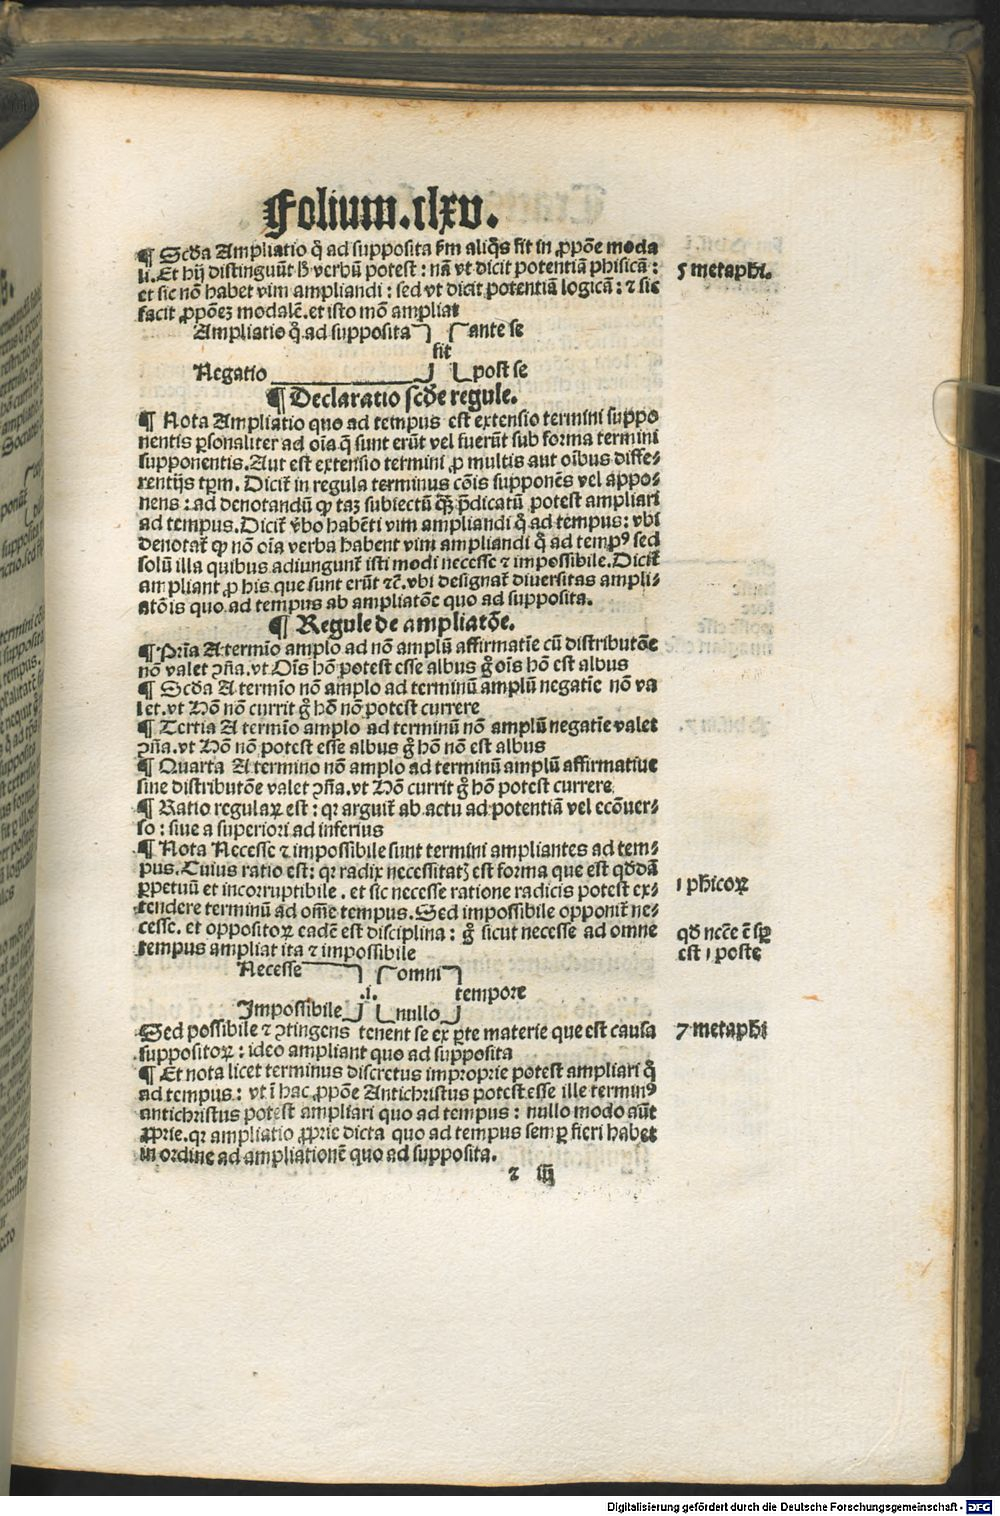 Folium.clxv.
¶ Scđa Ampliatio q̄ ad supposita ẜm aliq̄s fit in ꝓpōe moda
li. Et hij distinguūt ħ verbū potest: nā vt dicit potentiā phisicā:
5 metaphi.
et sic nō habet vim ampliandi: sed vt dicit potentiā logicā: ⁊ sic
facit ꝓpōeꝫ modalē. et isto mō ampliat
Ampliatio q̄ ad supposita ante se
fit
Negatio post se
¶ Declaratio scđe regule.
¶ Nota Ampliatio quo ad tempus est extensio termini suppo
nentis ꝑsonaliter ad oīa q̄ sunt erūt vel fuerūt sub forma termini
supponentis. Aut est extensio termini ꝓ multis aut oībus diffe-
rentijs tꝑm. Dicit̄ in regula terminus cōis supponēs vel appo-
nens: ad denotandū ꝙ taꝫ subiectū q̄ꝫ p̄dicatū potest ampliari
ad tempus. Dicit̄ v̄bo habēti vim ampliandi q̄ ad tempus: vbi
denotat̄ ꝙ nō oīa verba habent vim ampliandi q̄ ad tempꝰ sed
solū illa quibus adiungunt̄ isti modi necesse ⁊ impossibile. Dicit̄
ampliant ꝓ his que sunt erūt ⁊c̄. vbi designat̄ diuersitas ampli-
atōis quo ad tempus ab ampliatōe quo ad supposita.
¶ Regule de ampliatōe.
¶ Prīa A termīo amplo ad nō amplū affirmatīe cū distributōe
nō valet ꝯña. vt Oīs hō potest esse albus g̊ oīs hō est albus
¶ Scđa A termīo nō amplo ad terminū amplū negatīe nō va
let. vt Hō nō currit g̊ hō nō potest currere
¶ Tertia A termīo amplo ad terminū nō amplū negatīe valet
ꝯña. vt Hō nō potest esse albus g̊ hō nō est albus
¶ Quarta A termino nō amplo ad terminū amplū affirmatiue
sine distributōe valet ꝯña. vt Hō currit g̊ hō potest currere
¶ Ratio regulaꝝ est: qꝛ arguit̄ ab actu ad potentiā vel ecōuer-
so: siue a superiori ad inferius
¶ Nota Necesse ⁊ impossibile sunt termini ampliantes ad tem-
pus. Cuius ratio est: qꝛ radix necessitatꝭ est forma que est qđdā
ꝑpetuū et incorruptibile. et sic necesse ratione radicis potest ex-
1 phicoꝝ
tendere terminū ad om̄e tempus. Sed impossibile opponit̄ ne-
cesse. et oppositoꝝ eadē est disciplina: g̊ sicut necesse ad omne
qđ ncēe ē sꝑ
tempus ampliat ita ⁊ impossibile
est 1 poste
Necesse omni
.i. tempore
Impossibile nullo
Sed possibile ⁊ ꝯtingens tenent se ex ꝑte materie que est causa
7 metaphi
suppositoꝝ: ideo ampliant quo ad supposita
¶ Et nota licet terminus discretus improprie potest ampliari q̊
ad tempus: vt ī hac ꝓpōe Antichristus potest esse ille terminꝰ
antichristus potest ampliari quo ad tempus: nullo modo aūt
ꝓprie. qꝛ ampliatio ꝓprie dicta quo ad tempus semꝑ fieri habet
in ordine ad ampliationē quo ad supposita.
⁊ iiij
Digitalisierung gefördert durch die Deutsche Forschungsgemeinschaft - DFG